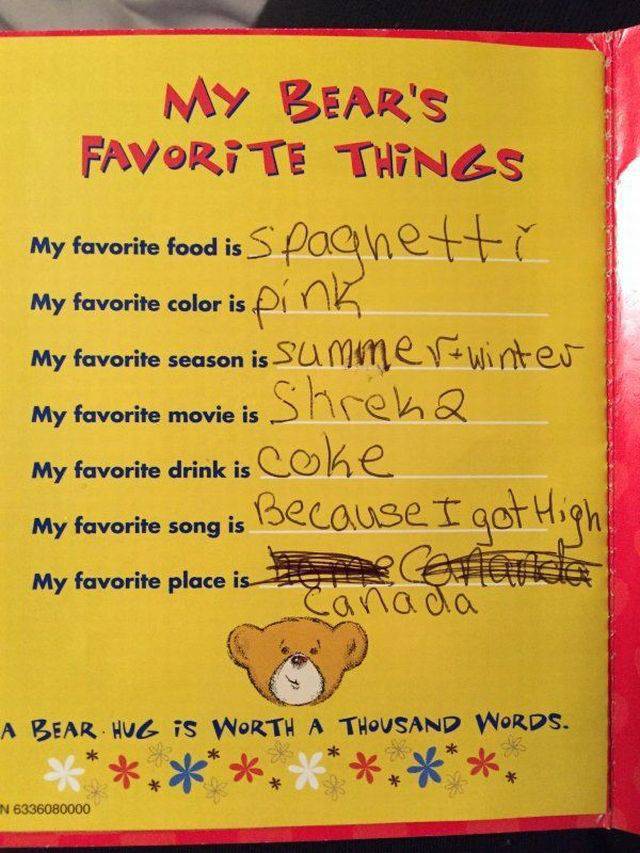 MY BEAR'S
FAVORiTE THiNGS
My favorite food is spaghetti
My favorite color is pink
My favorite season is summer+winter
My favorite movie is Shrek2
My favorite drink is coke
My favorite song is Because I got High
My favorite place is home Cananda
Canada
A BEAR HUG iS WORTH A THOUSAND WORDS.
N 6336080000